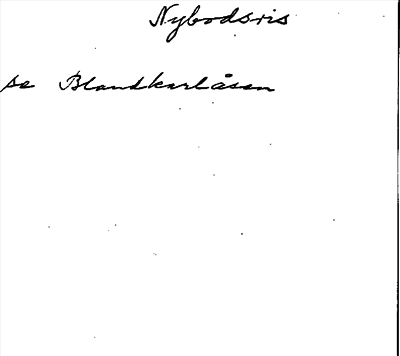 Nybodsris
se Blandkarlåsen